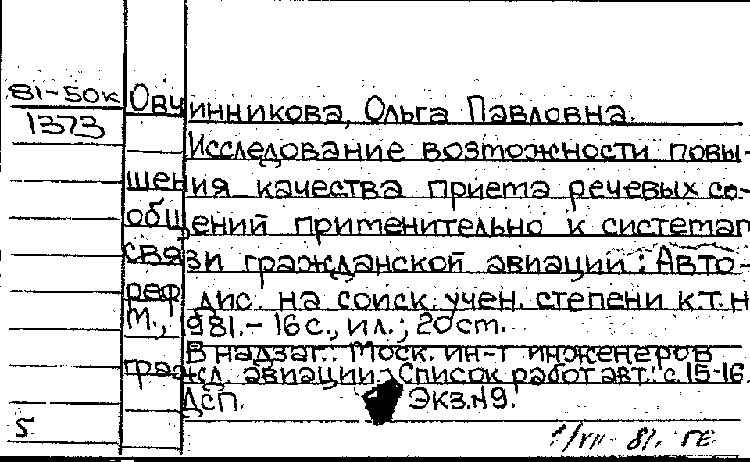 81-50к
1373
Овчинникова, Ольга Павловна.
Исследование возможности повы-
шения качества приема речевых со-
общений применительно к системам
связи гражданской авиации: Авто-
реф. дис. на соиск. учен. степени к.т.н
М., 1981.- 16 с., ил.; 20 см.
В надзаг.: Моск. ин-т инженеров
гражд. авиации. Список работ авт.: с.15-16.
ДСП. Экз.№9.
5